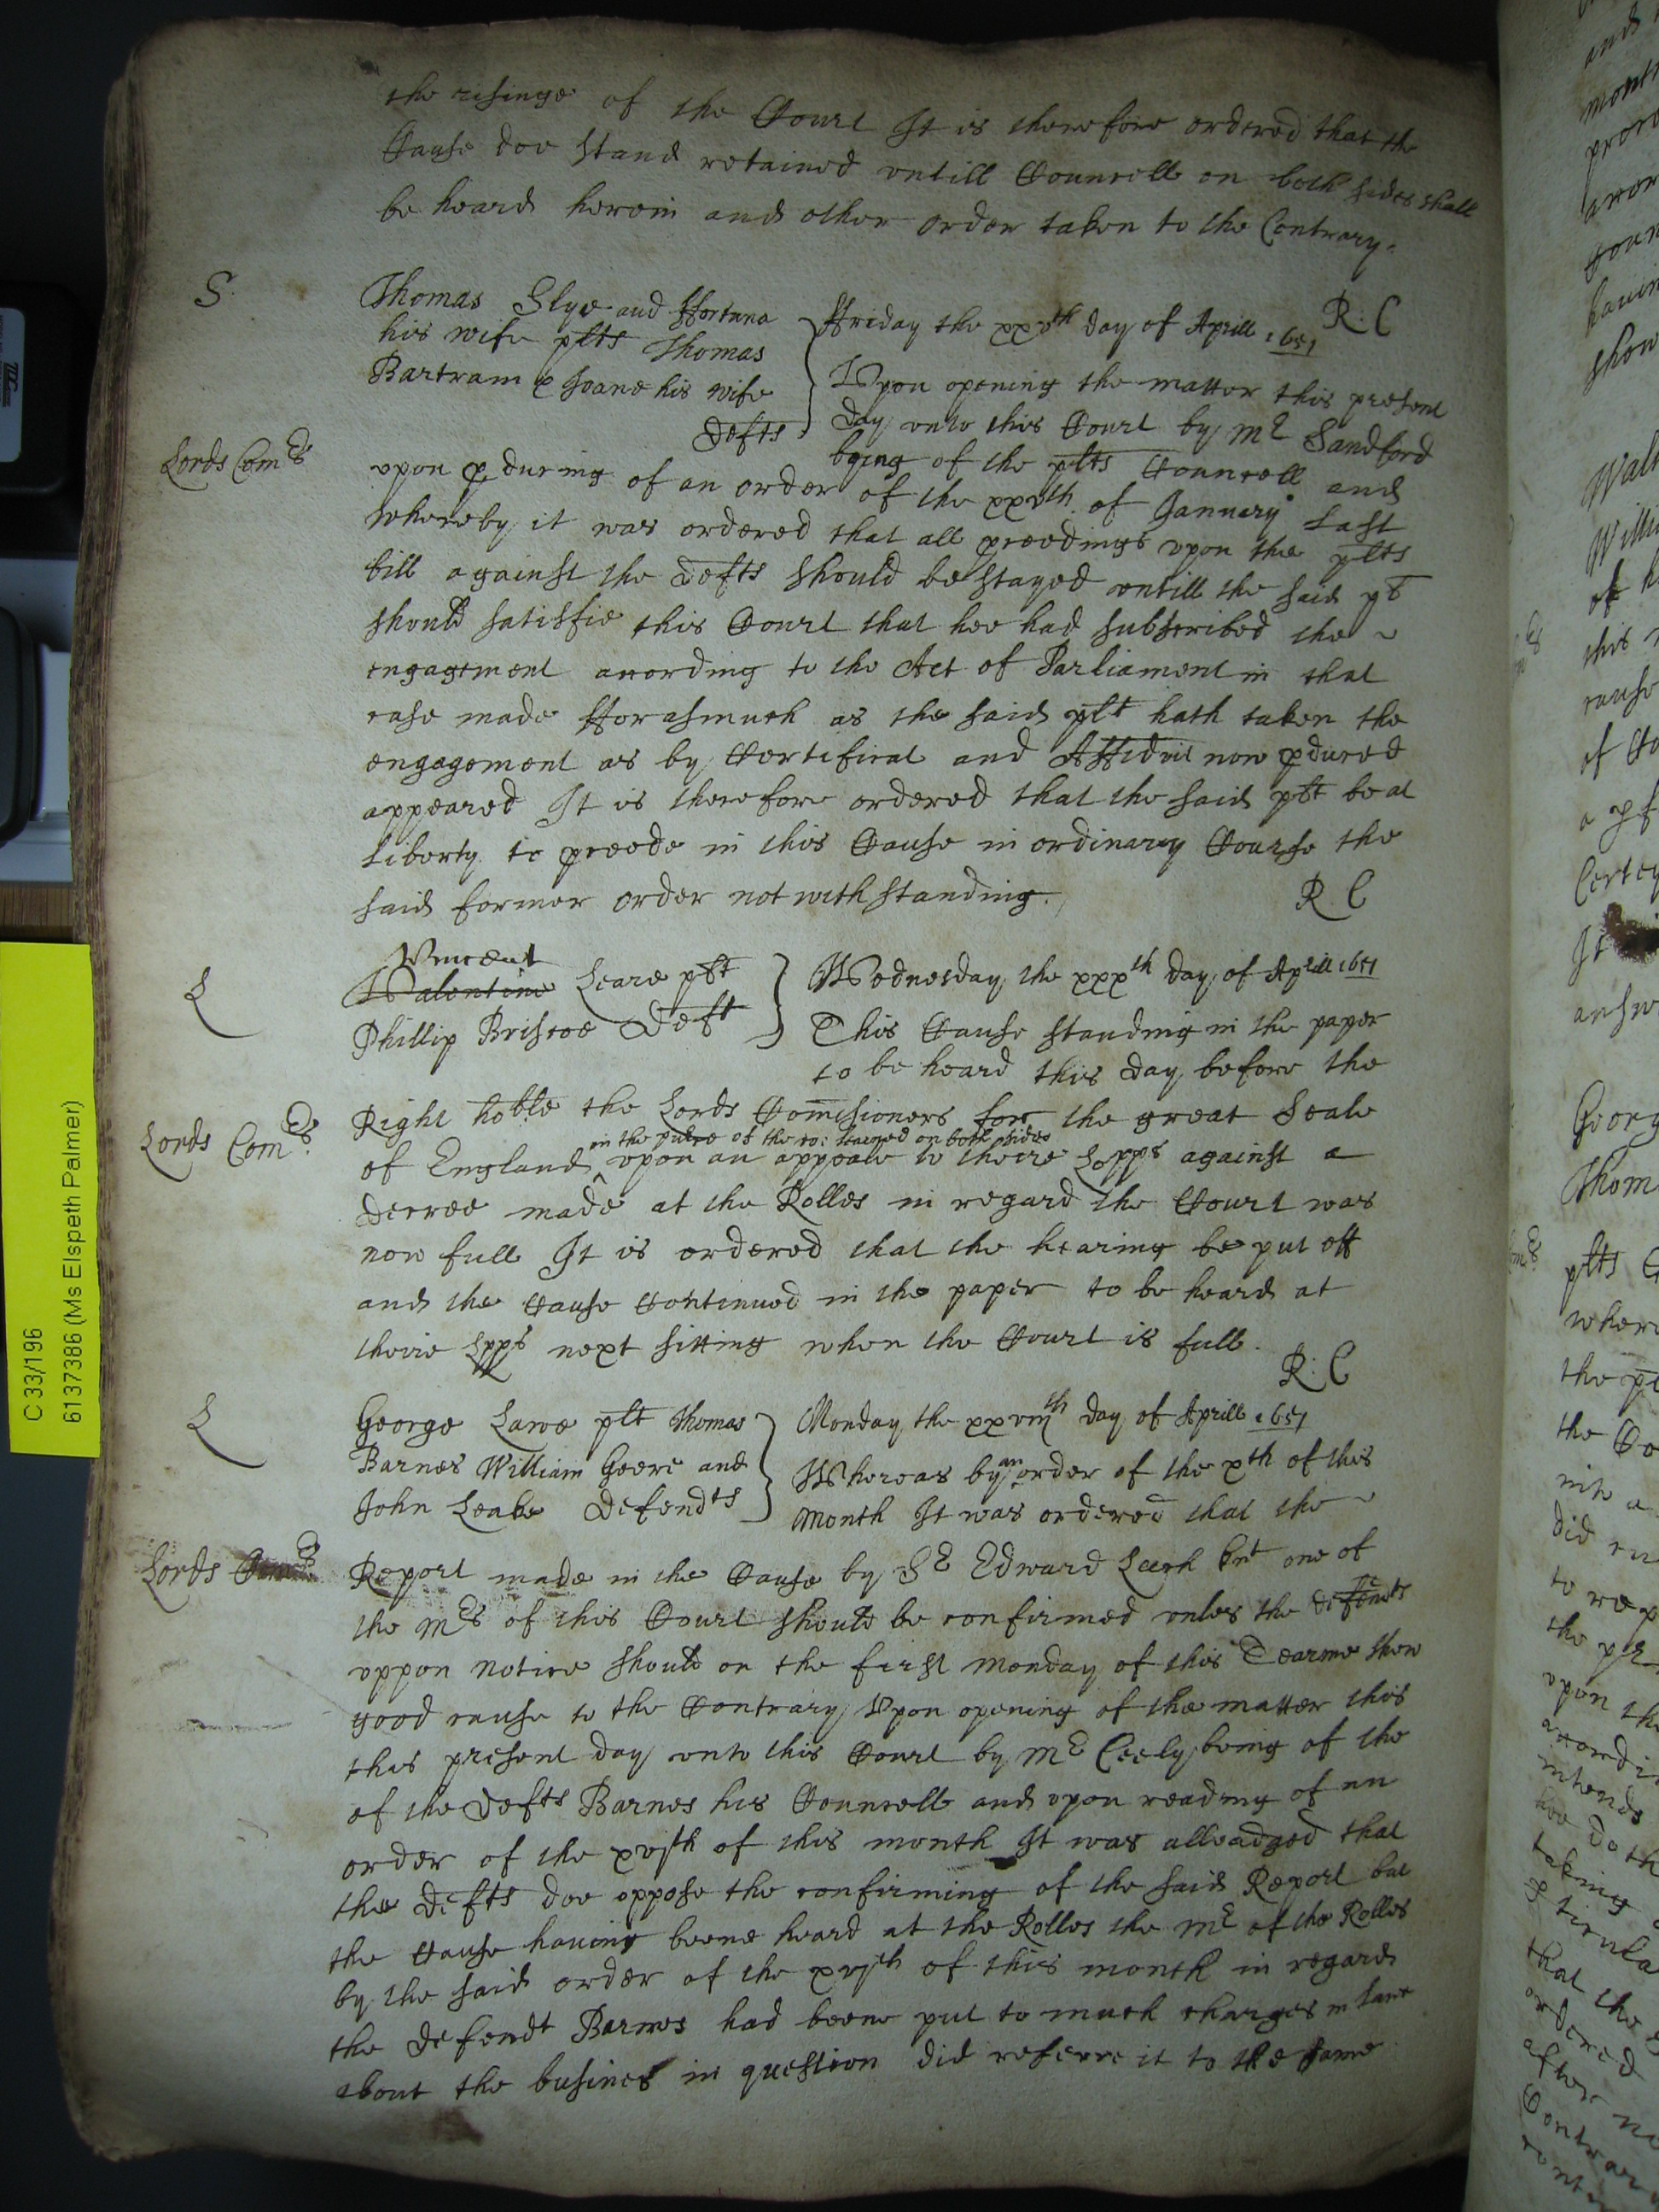 the risinge of the Court It is therefore ordered that the
Cause doe stand retained untill Councell on both sides shall
be heard herein and other order taken to the Contrary.
S
Thomas Slye and ffortuna
his wife plts Thomas
Bartram & Joane his wife
Defts
ffriday the xxvth day of Aprill 1651 R: C
Upon opening the matter this present
day unto this Court by Mr Sandford
being of the plts Councell and
Lords Comrs
upon pducing of an order of the xxvth of January last
whereby it was ordered that all pceedings upon the plts
bill against the Defts should be stayed untill the said plt
should satisfie this Court that hee had subscribed the
engagement according to the Act of Parliament in that
case made fforasmuch as the said plt hath taken the
engagement as by Certificat and Affidvit now pduced
appeared It is therefore ordered that the said plt be at
Liberty to pceede in this Cause in ordinary Course the
said former order notwithstanding. R C
L
Vincent
Valentine Leare plt
Phillip Briscoe Deft
Wednesday the xxxth day of Aprill 1651
This Cause standing in the paper
to be heard this day before the
Lords Comrs
Right hoble the Lords Comissioners for the great Seale
in the pnce of the Co: learned on both sides
of England upon an appeale to theire Lopps against a
decree made at the Rolles in regard the Court was
now full It is ordered that the hearing be put off
and the Cause Continued in the paper to be heard at
theire Lpps next sitting when the Court is full.
R: C
L
George Lawe plt Thomas
Barnes William Geere and
John Leake Defendts
Monday the xxviijth day of Aprill 1651
Whereas by an order of the xth of this
Month It was ordered that the
Lords Comrs
Report made in the Cause by Sr Edward Leech knt one of
the Mrs of this Court should be confirmed unles the defendts
uppon notice should on the first monday of this Tearme shew
good cause to the Contrary Upon opening of the matter this
this present day unto this Court by Mr Ceely being of the
of the Defts Barnes his Councell and upon reading of an
order of the xvjth of this month It was alleadged that
the Defts doe oppose the confirming of the said Report but
the Cause having beene heard at the Rolles the Mr of the Rolles
by the said order of the xvjth of this month in regard
the Defendt Barnes had beene put to much charges in
about the busines in question did referre it to the same
C 33/196
6137386 (Ms Elspeth Palmer)